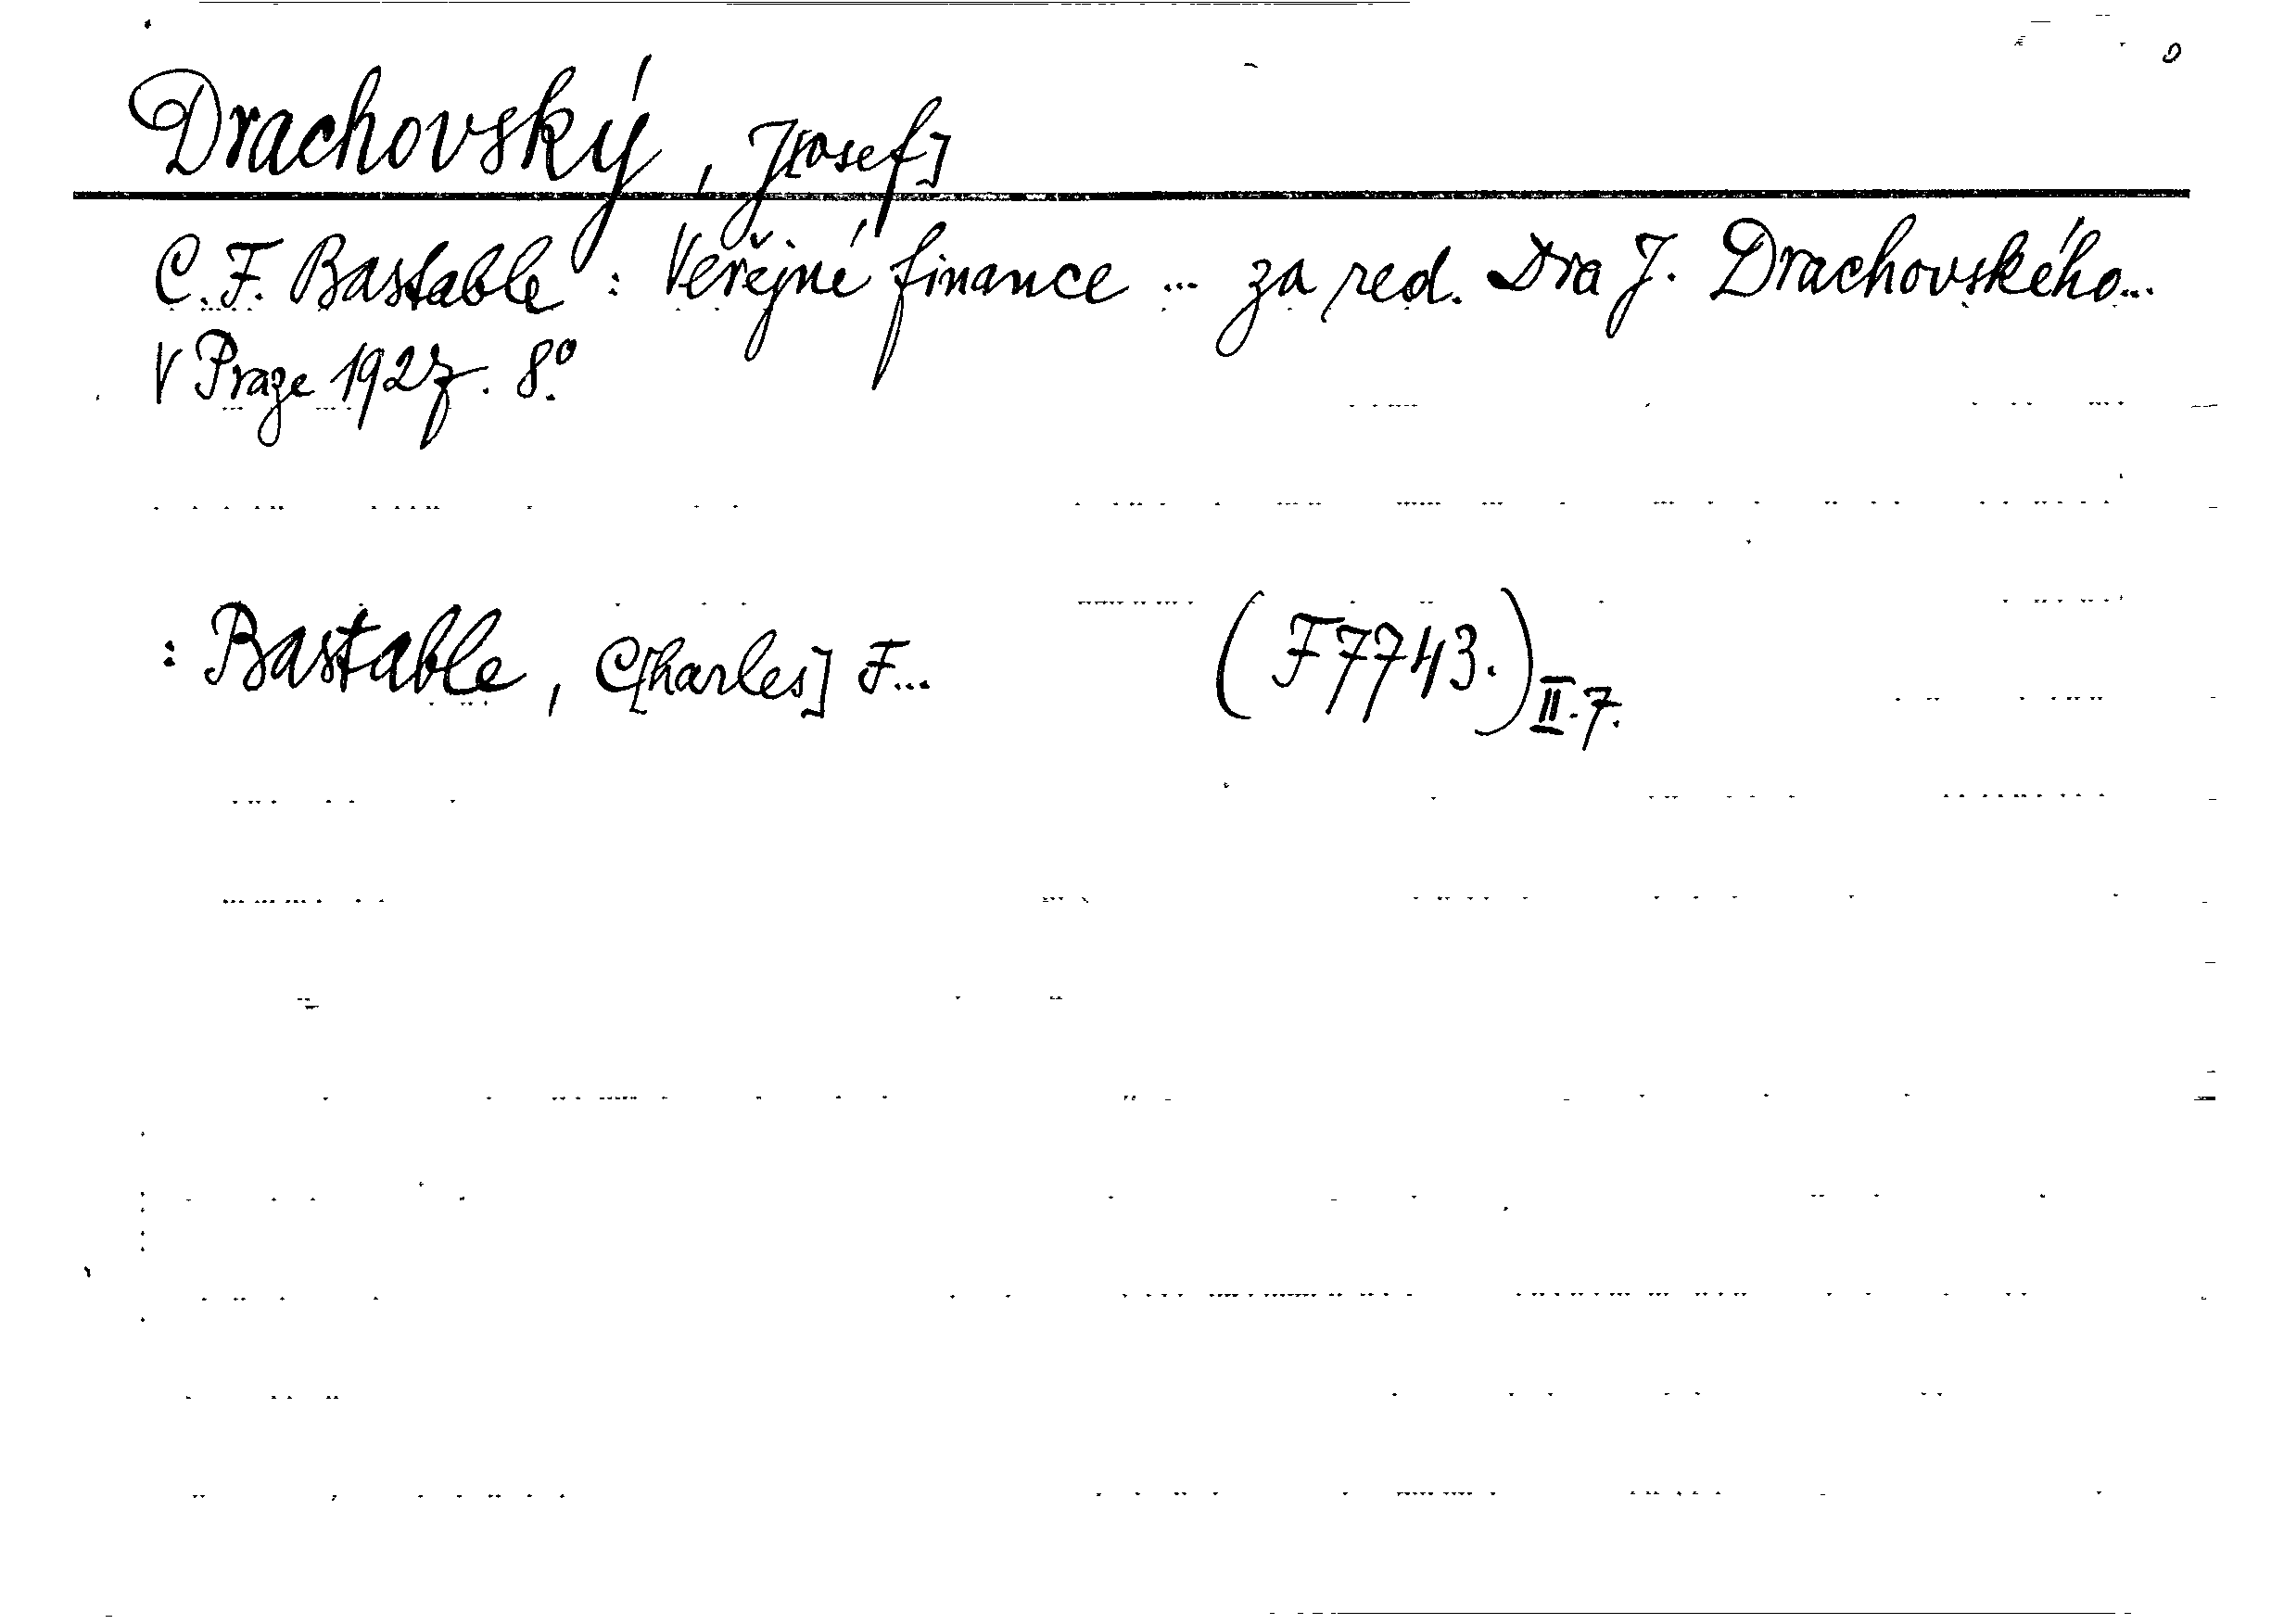 Drachovský, J[osef]
C. F. Bastable : Veřejné finance ... za red. Dra J. Drachovského...
V Praze 1927. 8°.
: Bastable, C[harles] F... (F 7743.) II.7.